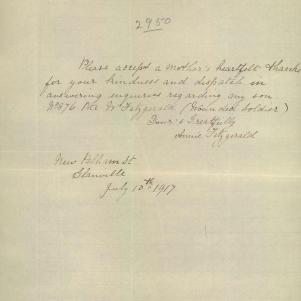 2950
Please accept a Mother's heartfelt thanks
for your kindness and dispatch in
answering enquiries regarding my son
Pte W. Fitzgerald (Wounded Soldier)
Your's Greatfully
Annie Fitzgerald
New Pelham St
Glanville
July 10th 1917